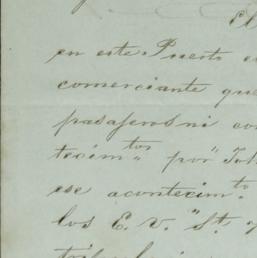 El
en este Puerto
comerciante que
pasajeros ni con
tecim.tos por
ese acontecim.to
los E. V. "St.